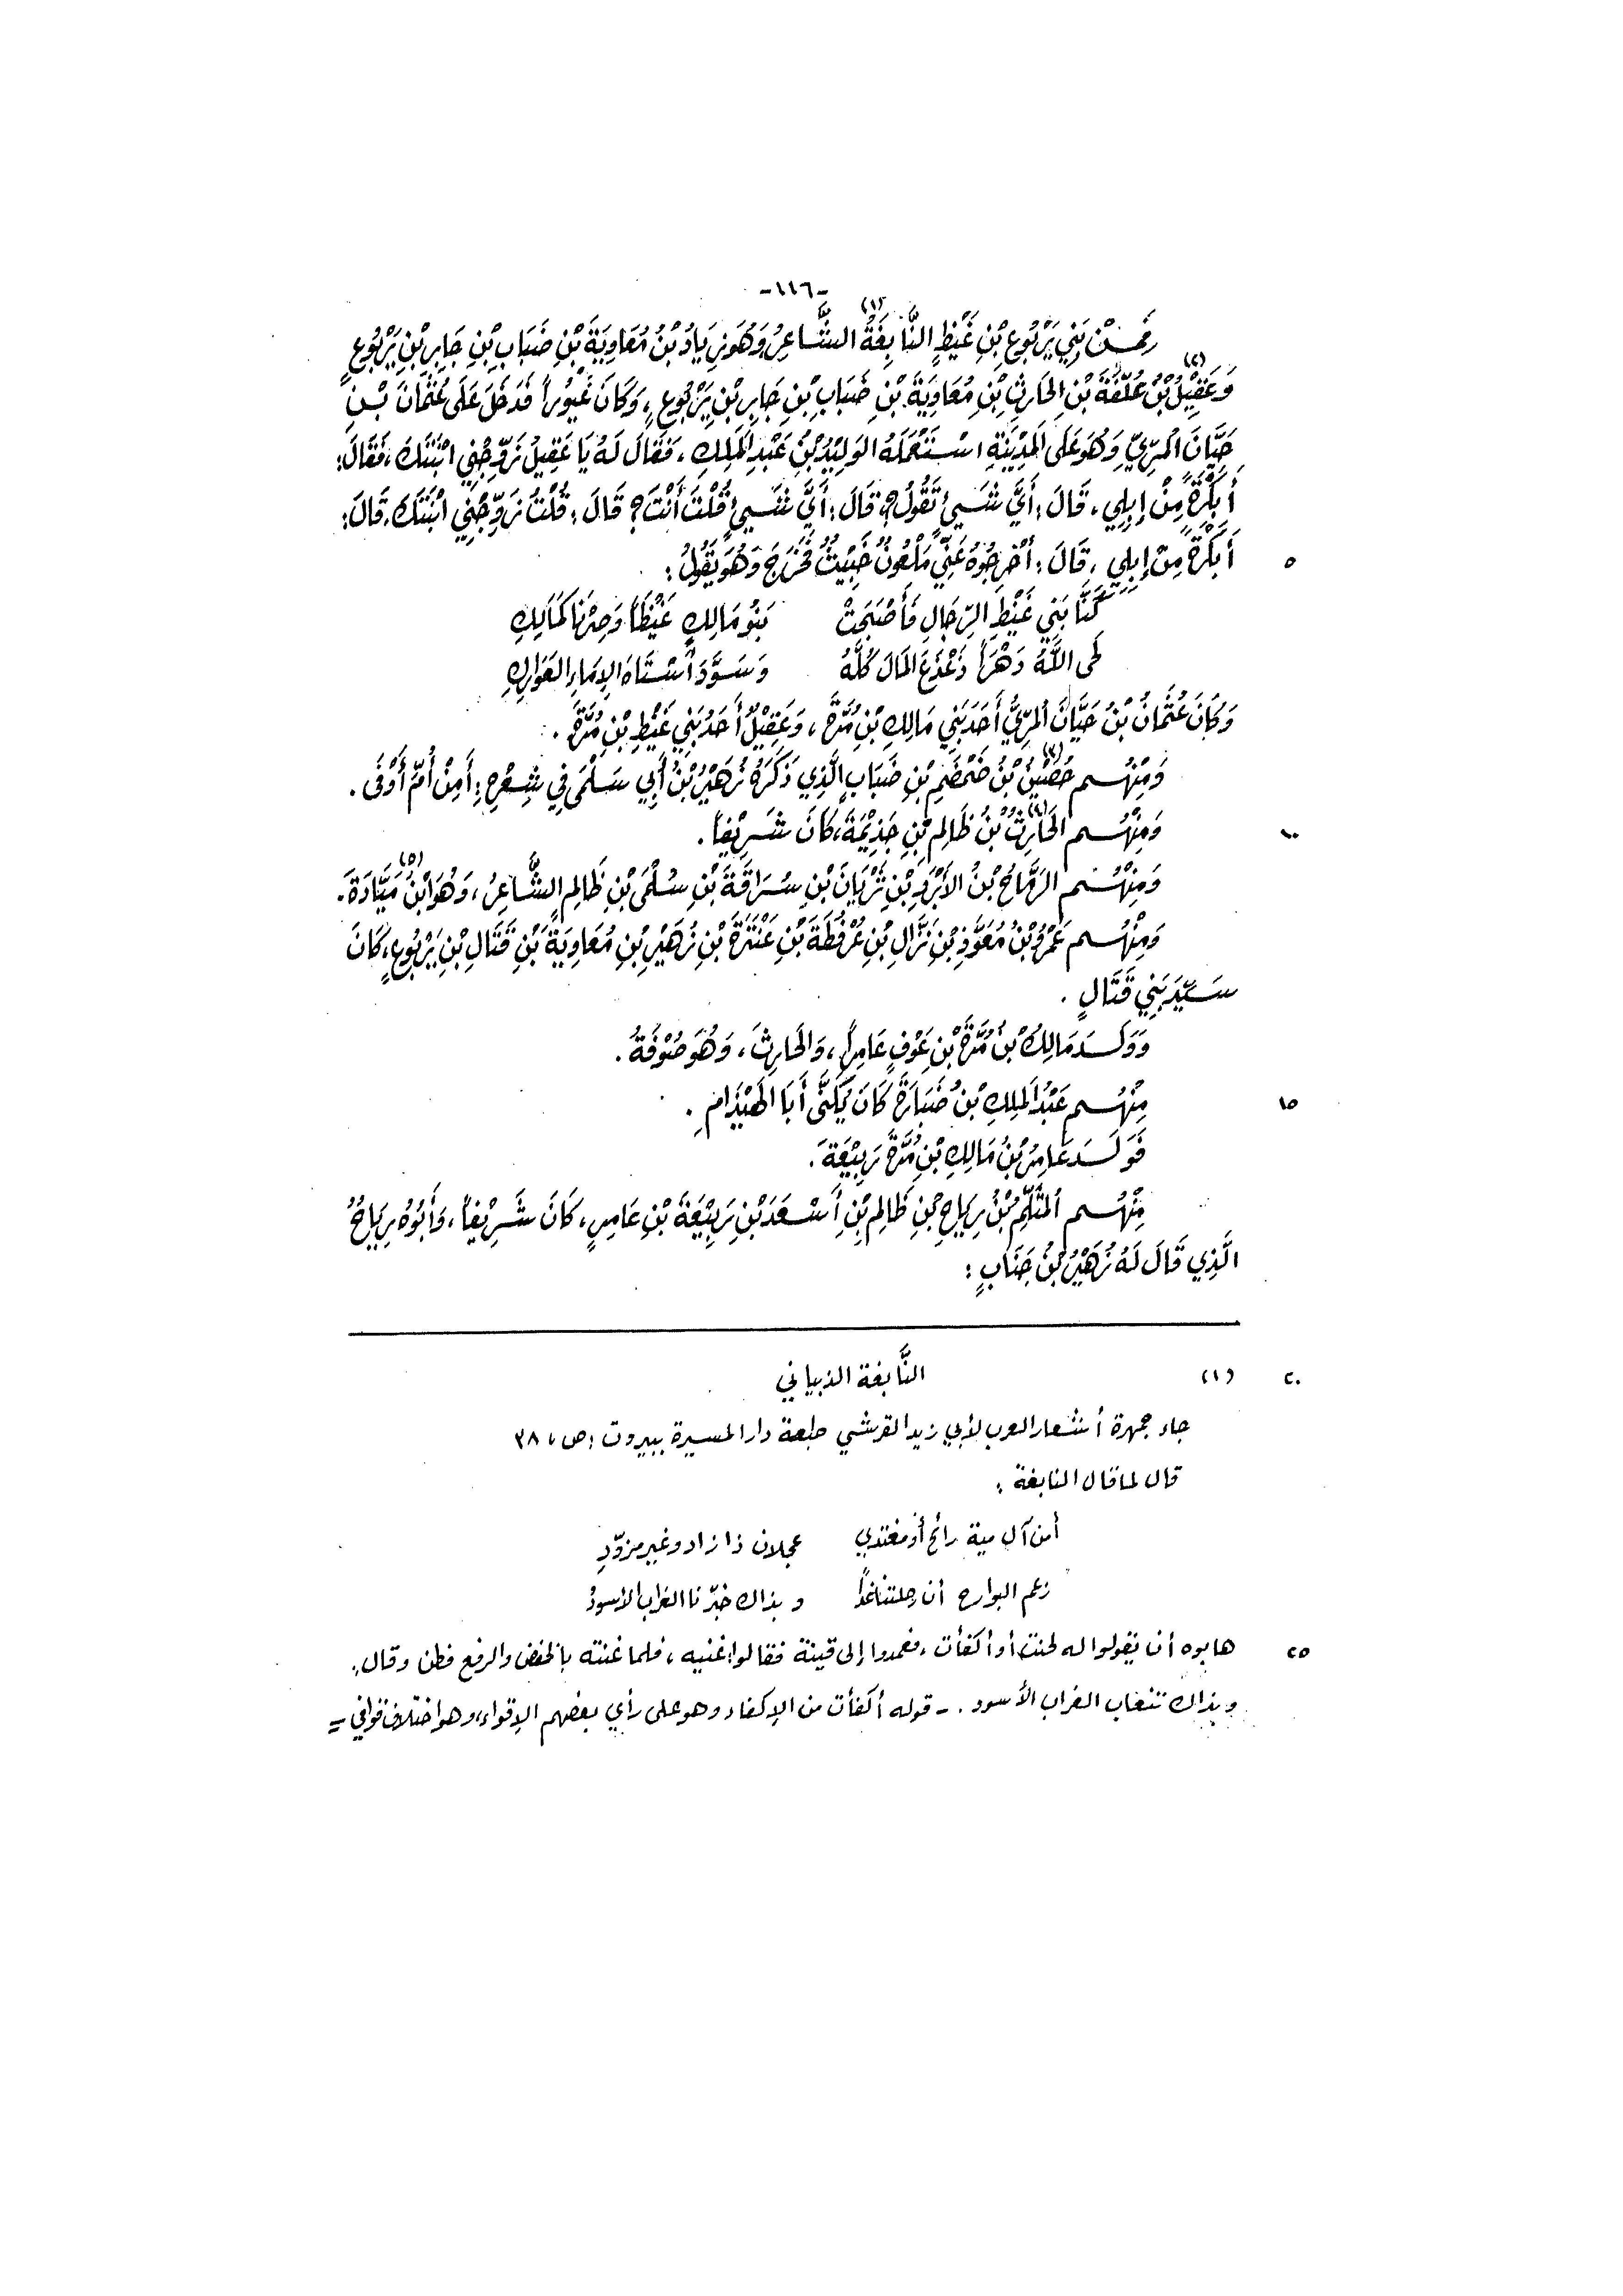 -١١٦-
فَمِنْ بَنِي يَرْبُوعِ بْنِ غَيْظٍ النَّابِغَةُ (١) الشَّاعِرُ وَهُوَ زِيَادُ بْنُ مُعَاوِيَةَ بْنِ ضَبَابِ بْنِ جَابِرِ بْنِ يَرْبُوعٍ
وَعَقِيْلُ (٢) بْنُ عُلَّفَةَ بْنِ الحَارِثِ بْنِ مُعَاوِيَةَ بْنِ ضَبَابِ بْنِ جَابِرِ بْنِ يَرْبُوعٍ، وَكَانَ غَيُوراً فَدَخَلَ عَلَى عُثْمَانَ بْنِ
حَيَّانَ المُرِّيِّ وَهُوَ عَلَى المَدِيْنَةِ اسْتَعْمَلَهُ الوَلِيْدُ بْنُ عَبْدِ المَلِكِ، فَقَالَ لَهُ يَا عَقِيْلُ زَوِّجْنِي ابْنَتَكَ، فَقَالَ:
أَبَكْرَةً مِنْ إِبِلِي، قَالَ: أَيَّ شَيْءٍ تَقُولُ؟ قَالَ: أَيَّ شَيْءٍ قُلْتَ أَنْتَ؟ قَالَ: قُلْتُ زَوِّجْنِي ابْنَتَكَ، قَالَ:
٥ أَبَكْرَةً مِنْ إِبِلِي، قَالَ: أَخْرِجُوهُ عَنِّي مَلْعُونٌ خَبِيْثٌ فَخَرَجَ وَهُوَ يَقُولُ:
كُنَّا بَنِي غَيْظِ الرِّجَالِ فَأَصْبَحَتْ بَنُو مَالِكٍ غَيْظَاً وَصِرْنَا كَمَالِكِ
لَحَى اللَّهُ دَهْرَاً ذَعْذَعَ المَالَ كُلَّهُ وَسَوَّدَ أَسْتَاهَ الإِمَاءِ العَوَارِكِ
وَكَانَ عُثْمَانُ بْنُ حَيَّانَ المُرِّيُّ أَحَدَ بَنِي مَالِكِ بْنِ مُرَّةَ، وَعَقِيْلُ أَحَدُ بَنِي غَيْظِ بْنِ مُرَّةَ.
وَمِنْهُم حُصَيْنُ (٣) بْنُ ضَمْضَمِ بْنِ ضَبَابٍ الَّذِي ذَكَرَهُ زُهَيْرُ بْنُ أَبِي سَلْمَى فِي شِعْرِهِ: أَمِنْ أُمِّ أَوْفَى.
١٠ وَمِنْهُم الحَارِثُ (٤) بْنُ ظَالِمِ بْنِ جَذِيْمَةَ، كَانَ شَرِيْفاً.
وَمِنْهُم الرَّمَّاحُ بْنُ الأَبْرَدِ بْنِ ثَرْيَانَ بْنِ سُرَاقَةَ بْنِ سُلْمَى بْنِ ظَالِمٍ الشَّاعِرُ، وَهُوَ ابْنُ (٥) مَيَّادَةَ.
وَمِنْهُم عَمْرُو بْنُ مُعَوَّذِ بْنِ نَزَّالِ بْنِ عُرْفُطَةَ بْنِ عَنْتَرَةَ بْنِ زُهَيْرِ بْنِ مُعَاوِيَةَ بْنِ قَتَّالِ بْنِ يَرْبُوعٍ، كَانَ
سَيِّدَ بَنِي قَتَّالٍ.
وَوَلَدَ مَالِكُ بْنُ مُرَّةَ بْنِ عَوْفٍ عَامِرَاً، وَالحَارِثَ، وَهُوَ صُوْفَةُ.
١٥ مِنْهُم عَبْدُ المَلِكِ بْنُ ضُبَارَةَ كَانَ يُكَنَّى أَبَا الهَيْذَامِ.
فَوَلَدَ عَامِرُ بْنُ مَالِكِ بْنِ مُرَّةَ رَبِيْعَةَ.
مِنْهُم المُثَلَّمُ بْنُ رِيَاحِ بْنِ ظَالِمِ بْنِ أَسْعَدَ بْنِ رَبِيْعَةَ بْنِ عَامِرٍ، كَانَ شَرِيْفاً، وَأَبُوهُ رِيَاحُ
الَّذِي قَالَ لَهُ زُهَيْرُ بْنُ جَنَابٍ:
٢٠ (١) النَّابغة الذبياني
جاء جمهرة أشعار العرب لأبي زيد القرشي طبعة دار المسيرة ببيروت: ص، ٣٨
قال لما قال النابغة:
أمن آل مية رائح أو مغتدي عجلان ذا زاد وغير مزوّدِ
زعم البوارح أن رحلتنا غداً وبذاك خبّرنا الغراب الأسودُ
٢٥ هابوه أن يقولوا له لحنت أو أكفأت، فعمدوا إلى قينة فقالوا: غنيه، فلما غنته بالخفض والرفع فطن وقال:
وبذاك تنعاب الغراب الأسود. - قوله أكفأت من الإكفاء وهو على رأي بعضهم الإقواء، وهو اختلاف قوافي =